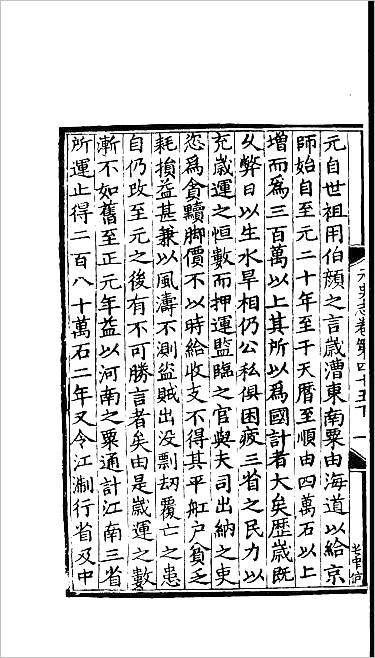 元史志卷第四十五下 一
元自世祖用伯顔之言歲漕東南粟由海道以給京
師始自至元二十年至于天曆至順由四萬石以上
増而爲三百萬以上其所以爲國計者大矣歷歲既
乆弊日以生水旱相仍公私俱困疲三省之民力以
充歲運之恒數而押運監臨之官與夫司出納之吏
恣爲貪黷脚價不以時給收支不得其平舡户貧乏
耗損益甚兼以風濤不測盗賊出没剽刼覆亡之患
自仍改至元之後有不可勝言者矣由是歲運之數
漸不如舊至正元年益以河南之粟通計江南三省
所運止得二百八十萬石二年又令江淛行省及中